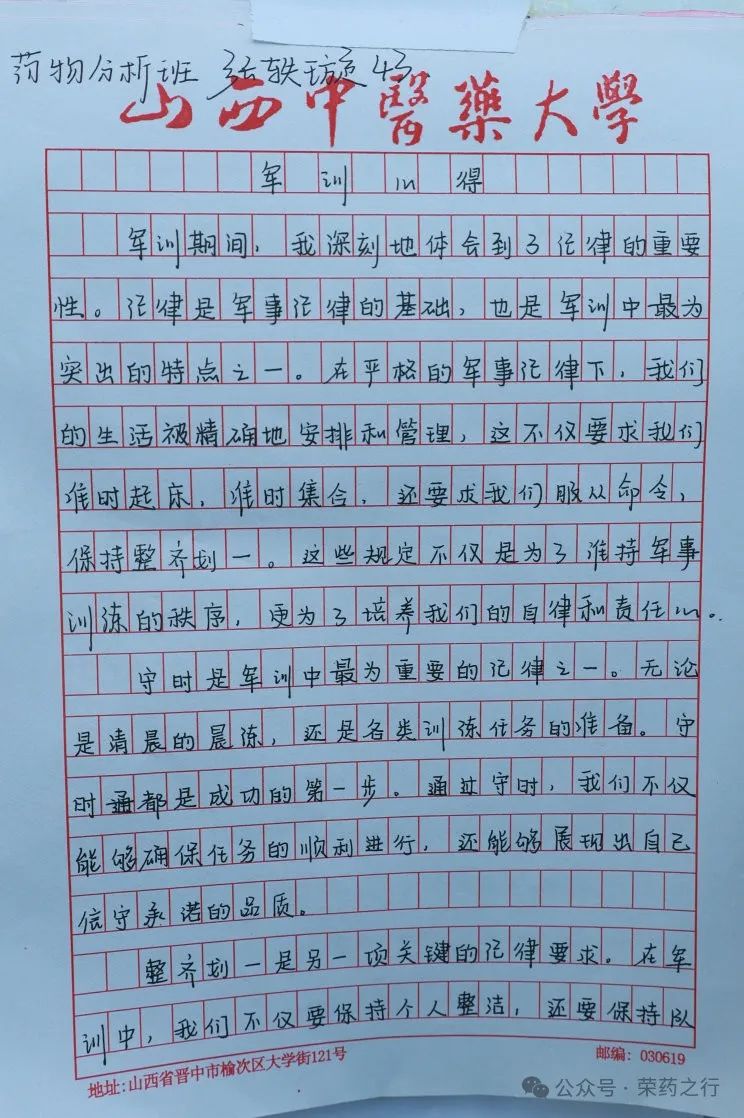 药物分析班 张轶璇 43
山西中醫藥大學
军训心得
军训期间，我深刻地体会到了纪律的重要
性。纪律是军事纪律的基础，也是军训中最为
突出的特点之一。在严格的军事纪律下，我们
的生活被精确地安排和管理，这不仅要求我们
准时起床，准时集合，还要求我们服从命令，
保持整齐划一。这些规定不仅是为了维持军事
训练的秩序，更为了培养我们的自律和责任心。
守时是军训中最为重要的纪律之一。无论
是清晨的晨练，还是各类训练任务的准备。守
时通都是成功的第一步。通过守时，我们不仅
能够确保任务的顺利进行，还能够展现出自己
信守承诺的品质。
整齐划一是另一项关键的纪律要求。在军
训中，我们不仅要保持个人整洁，还要保持队
地址:山西省晋中市榆次区大学街121号
邮编: 030619
公众号·荣药之行